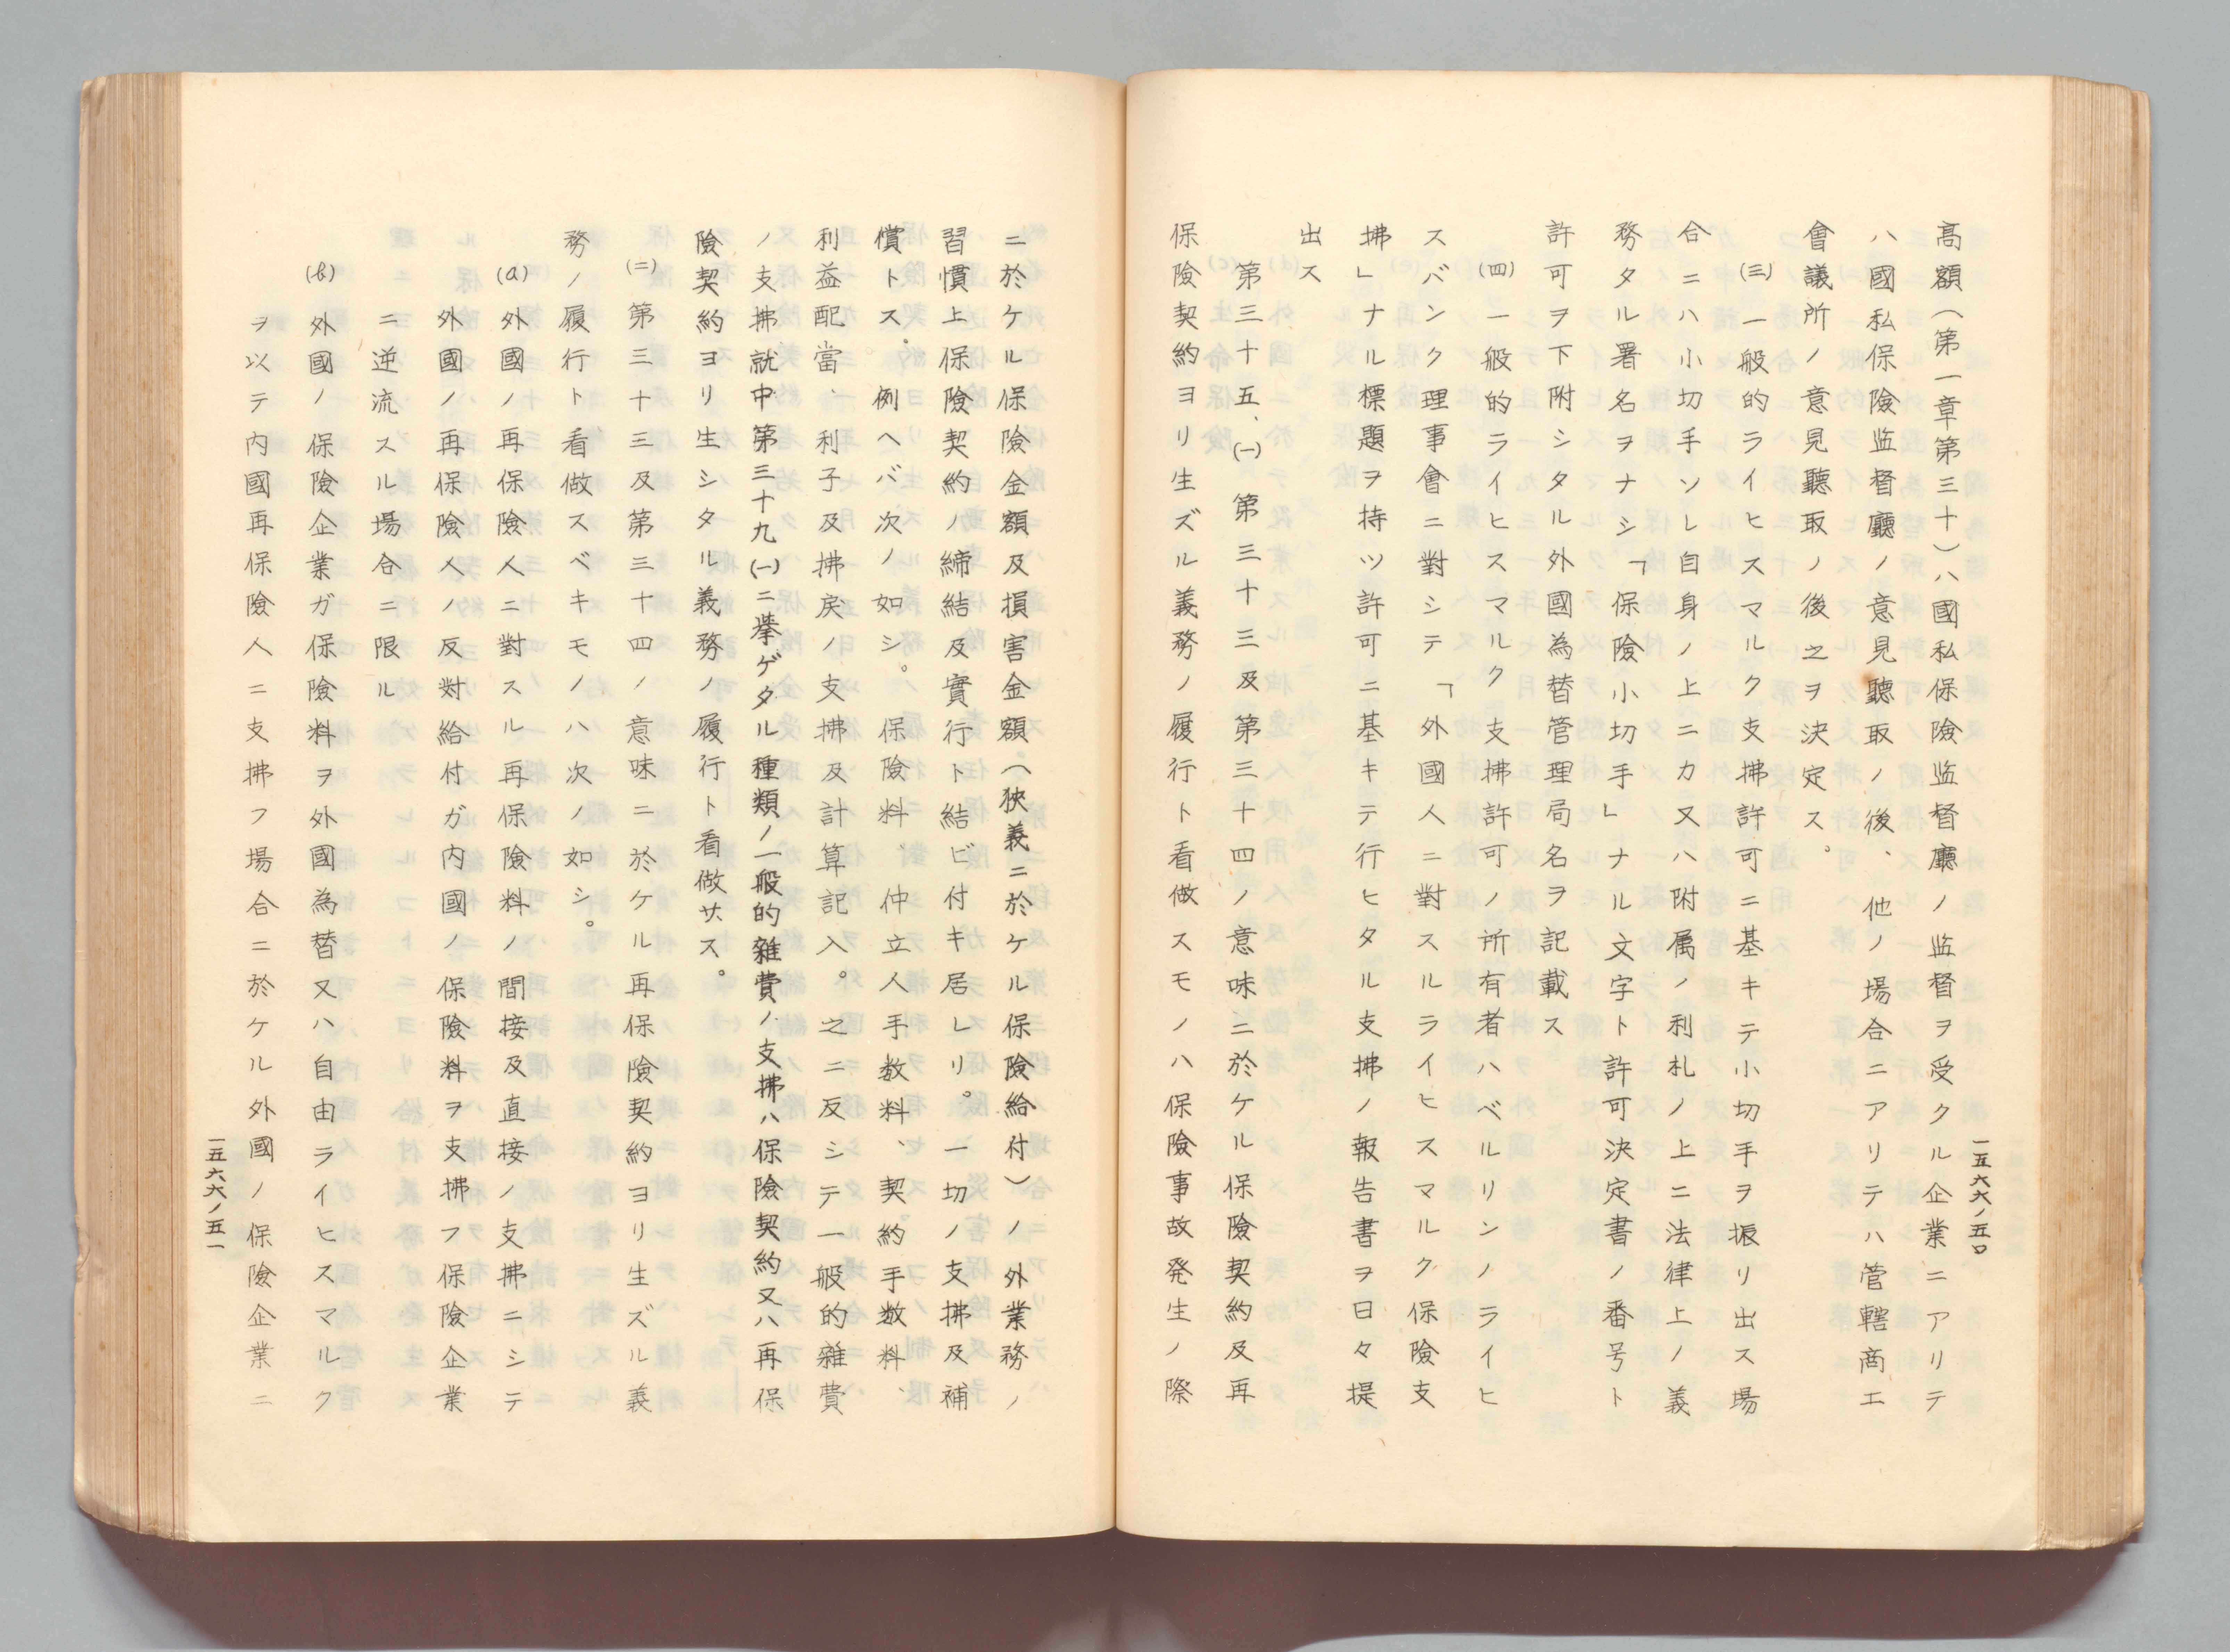 一五六六ノ五〇
高額(第一章第三十)ハ國私保險监督廳ノ监督ヲ受クル企業ニアリテ
ハ國私保險监督廳ノ意見聽取ノ後、他ノ場合ニアリテハ管轄商工
會議所ノ意見聽取ノ後之ヲ決定ス。
(三)一般的ライヒスマルク支拂許可ニ基キテ小切手ヲ振リ出ス場
合ニハ小切手ソレ自身ノ上ニカ又ハ附属ノ利札ノ上ニ法律上ノ義
務タル署名ヲナシ「保險小切手」ナル文字ト許可決定書ノ番号ト
許可ヲ下附シタル外國為替管理局名ヲ記載ス
(四)一般的ライヒスマルク支拂許可ノ所有者ハベルリンノライヒ
スバンク理事會ニ對シテ「外國人ニ對スルライヒスマルク保險支
拂」ナル標題ヲ持ツ許可ニ基キテ行ヒタル支拂ノ報告書ヲ日々提
出ス
第三十五、(一)第三十三及第三十四ノ意味ニ於ケル保險契約及再
保險契約ヨリ生ズル義務ノ履行ト看做スモノハ保險事故発生ノ際
ニ於ケル保險金額及損害金額(狹義ニ於ケル保險給付)ノ外業務ノ
習慣上保險契約ノ締結及實行ト結ビ付キ居レリ。一切ノ支拂及補
償トス.例ヘバ次ノ如シ。保險料、仲立人手数料、契約手数料、
利益配當、利子及拂戻ノ支拂及計算記入。之ニ反シテ一般的雜費
ノ支拂就中第三十九(一)ニ挙ゲタル種類ノ一般的雜費ノ支拂ハ保險契約又ハ再保
險契約ヨリ生シタル義務ノ履行ト看做サス。
(二)第三十三及第三十四ノ意味ニ於ケル再保險契約ヨリ生ズル義
務ノ履行ト看做スベキモノハ次ノ如シ。
(a)外國ノ再保險人ニ對スル再保險料ノ間接及直接ノ支拂ニシテ
外國ノ再保險人ノ反対給付ガ内國ノ保險料ヲ支拂フ保險企業
ニ逆流スル場合ニ限ル
(b)外國ノ保險企業ガ保險料ヲ外國為替又ハ自由ライヒスマルク
ヲ以テ内國再保險人ニ支拂フ場合ニ於ケル外國ノ保險企業ニ
一五六六ノ五一